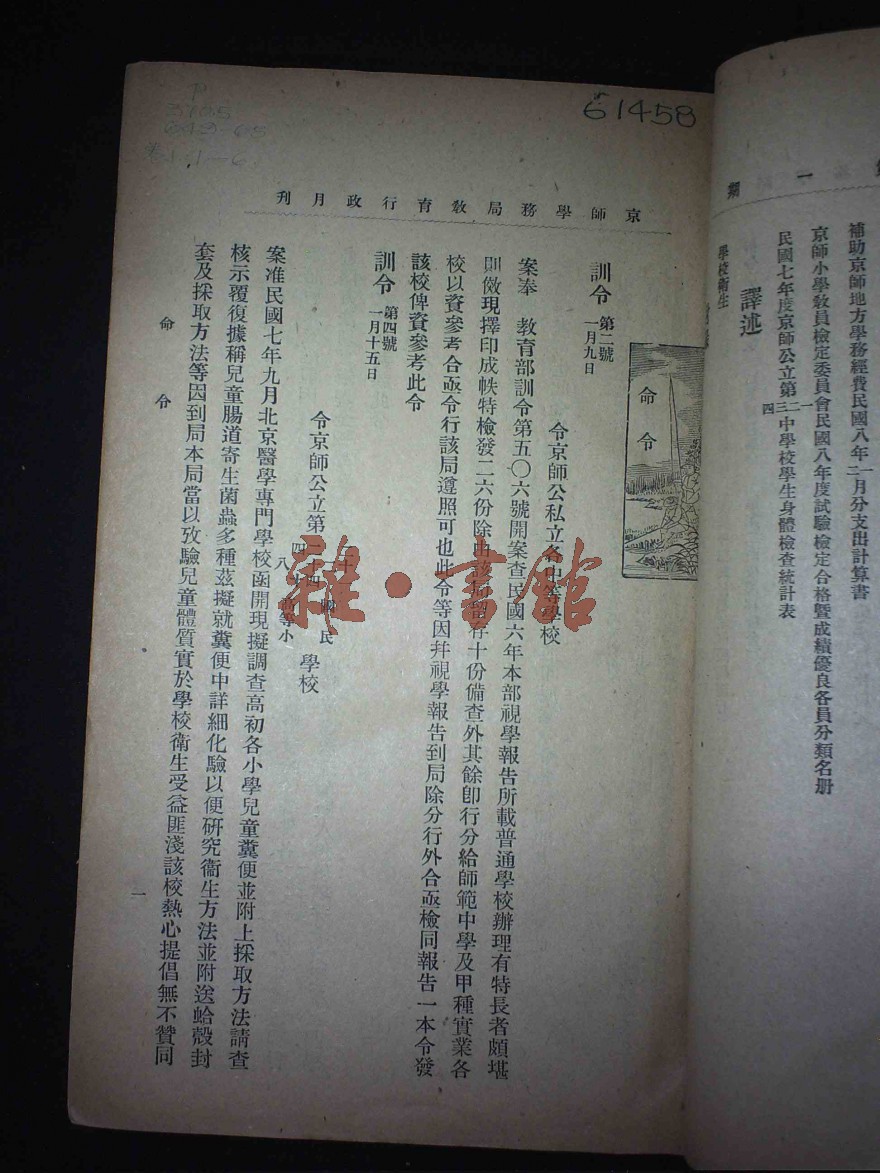 第一期
補助京師地方學務經費民國八年一二月分支出計算書
京師小學敎員檢定委員會民國八年度試驗檢定合格曁成績優良各員分類名册
民國七年度京師公立第一二三四中學校學生身體檢查統計表
譯述
學校衞生
61458
P
卷1.1-6
京師學務局敎育行政月刊
命令
訓令 第二號 一月九日
令京師公私立各中等學校
案奉 敎育部訓令第五〇六號開案查民國六年本部視學報告所載普通學校辦理有特長者頗堪
則傚現擇印成帙特檢發二六份除由該局留存十份備查外其餘卽行分給師範中學及甲種實業各
校以資參考合亟令行該局遵照可也此令等因幷視學報告到局除分行外合亟檢同報告一本令發
該校俾資參考此令
訓令 第四號 一月十五日
令京師公立第 高等小 國民 學校
案准民國七年九月北京醫學專門學校函開現擬調查高初各小學兒童糞便並附上採取方法請查
核示覆復據稱兒童腸道寄生菌蟲多種茲擬就糞便中詳細化驗以便硏究衞生方法並附送蛤殼封
套及採取方法等因到局本局當以攷驗兒童體質實於學校衞生受益匪淺該校熱心提倡無不贊同
命令
一
雜·書館